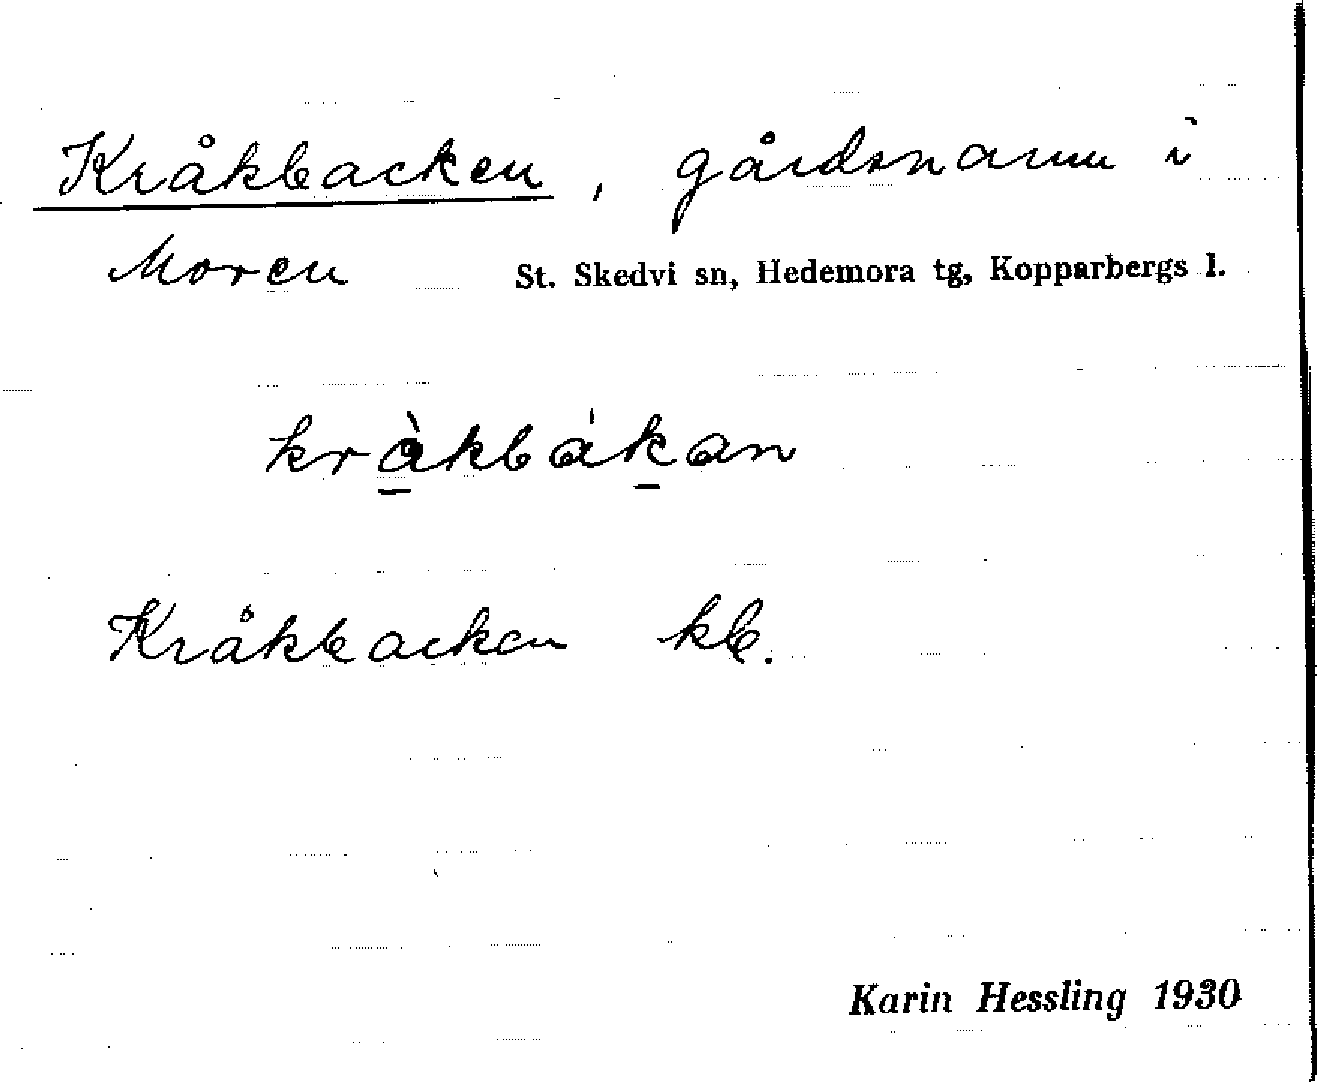 Kråkbacken, gårdsnamn i
Moren St. Skedvi sn, Hedemora tg, Kopparbergs l.
kràkbákan
Kråkbacken kb.
Karin Hessling 1930